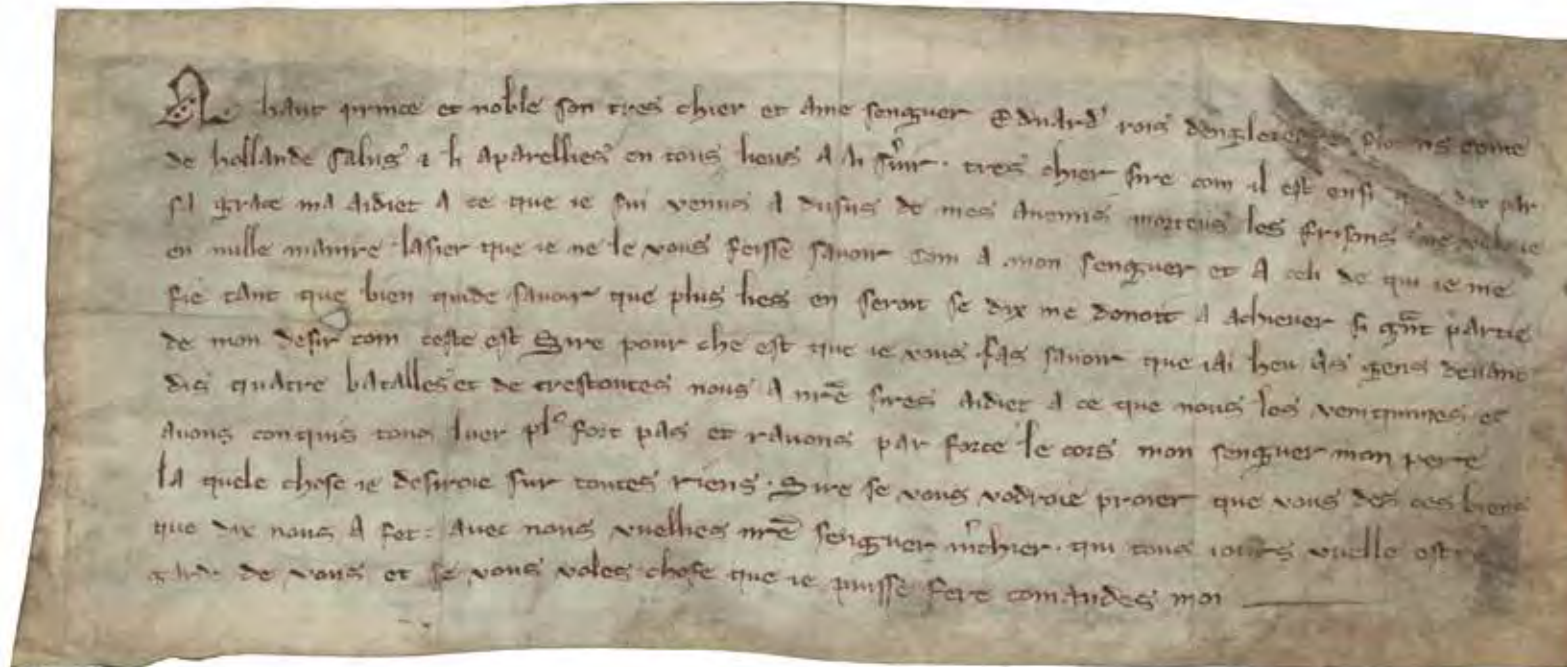 A haut prince et noble son tres chier et ame sengner Edward' rois dengletere Florens conte
de hollande salus & li aparellies en tous lieus a li s'uir . tres chier sire com il est ensi que dix par
sa grace ma aidiet a ce que ie sui venus a dusus de mes anemis morteus les frisons ne voel ie
en nulle maniere lasier que ie ne le vous feisse savoir com a mon sengner et a celi de qui ie me
fie tant que bien quide savoir que plus lies en seroit se dix me donoit a achiever si gnt partie
de mon desir com ceste est Sire pour che est que ie vous fas savoir que iai heu as gens devant
dis quatre batalles et de trestoutes nous a nre sires aidiet a ce que nous les venquimes et
avons conquis tous luer pl9 fort pas et ravons par force le cors mon sengner mon pere
la quele chose ie desiroie sur toutes riens . Sire se vous vodroie proier que vous des ces biens
que dix nous a fet : avec nous vuellies nre sengner m'chier . qui tous iours vuelle estre
garde de vous et se vous voles chose que ie puisse fere comandes moi